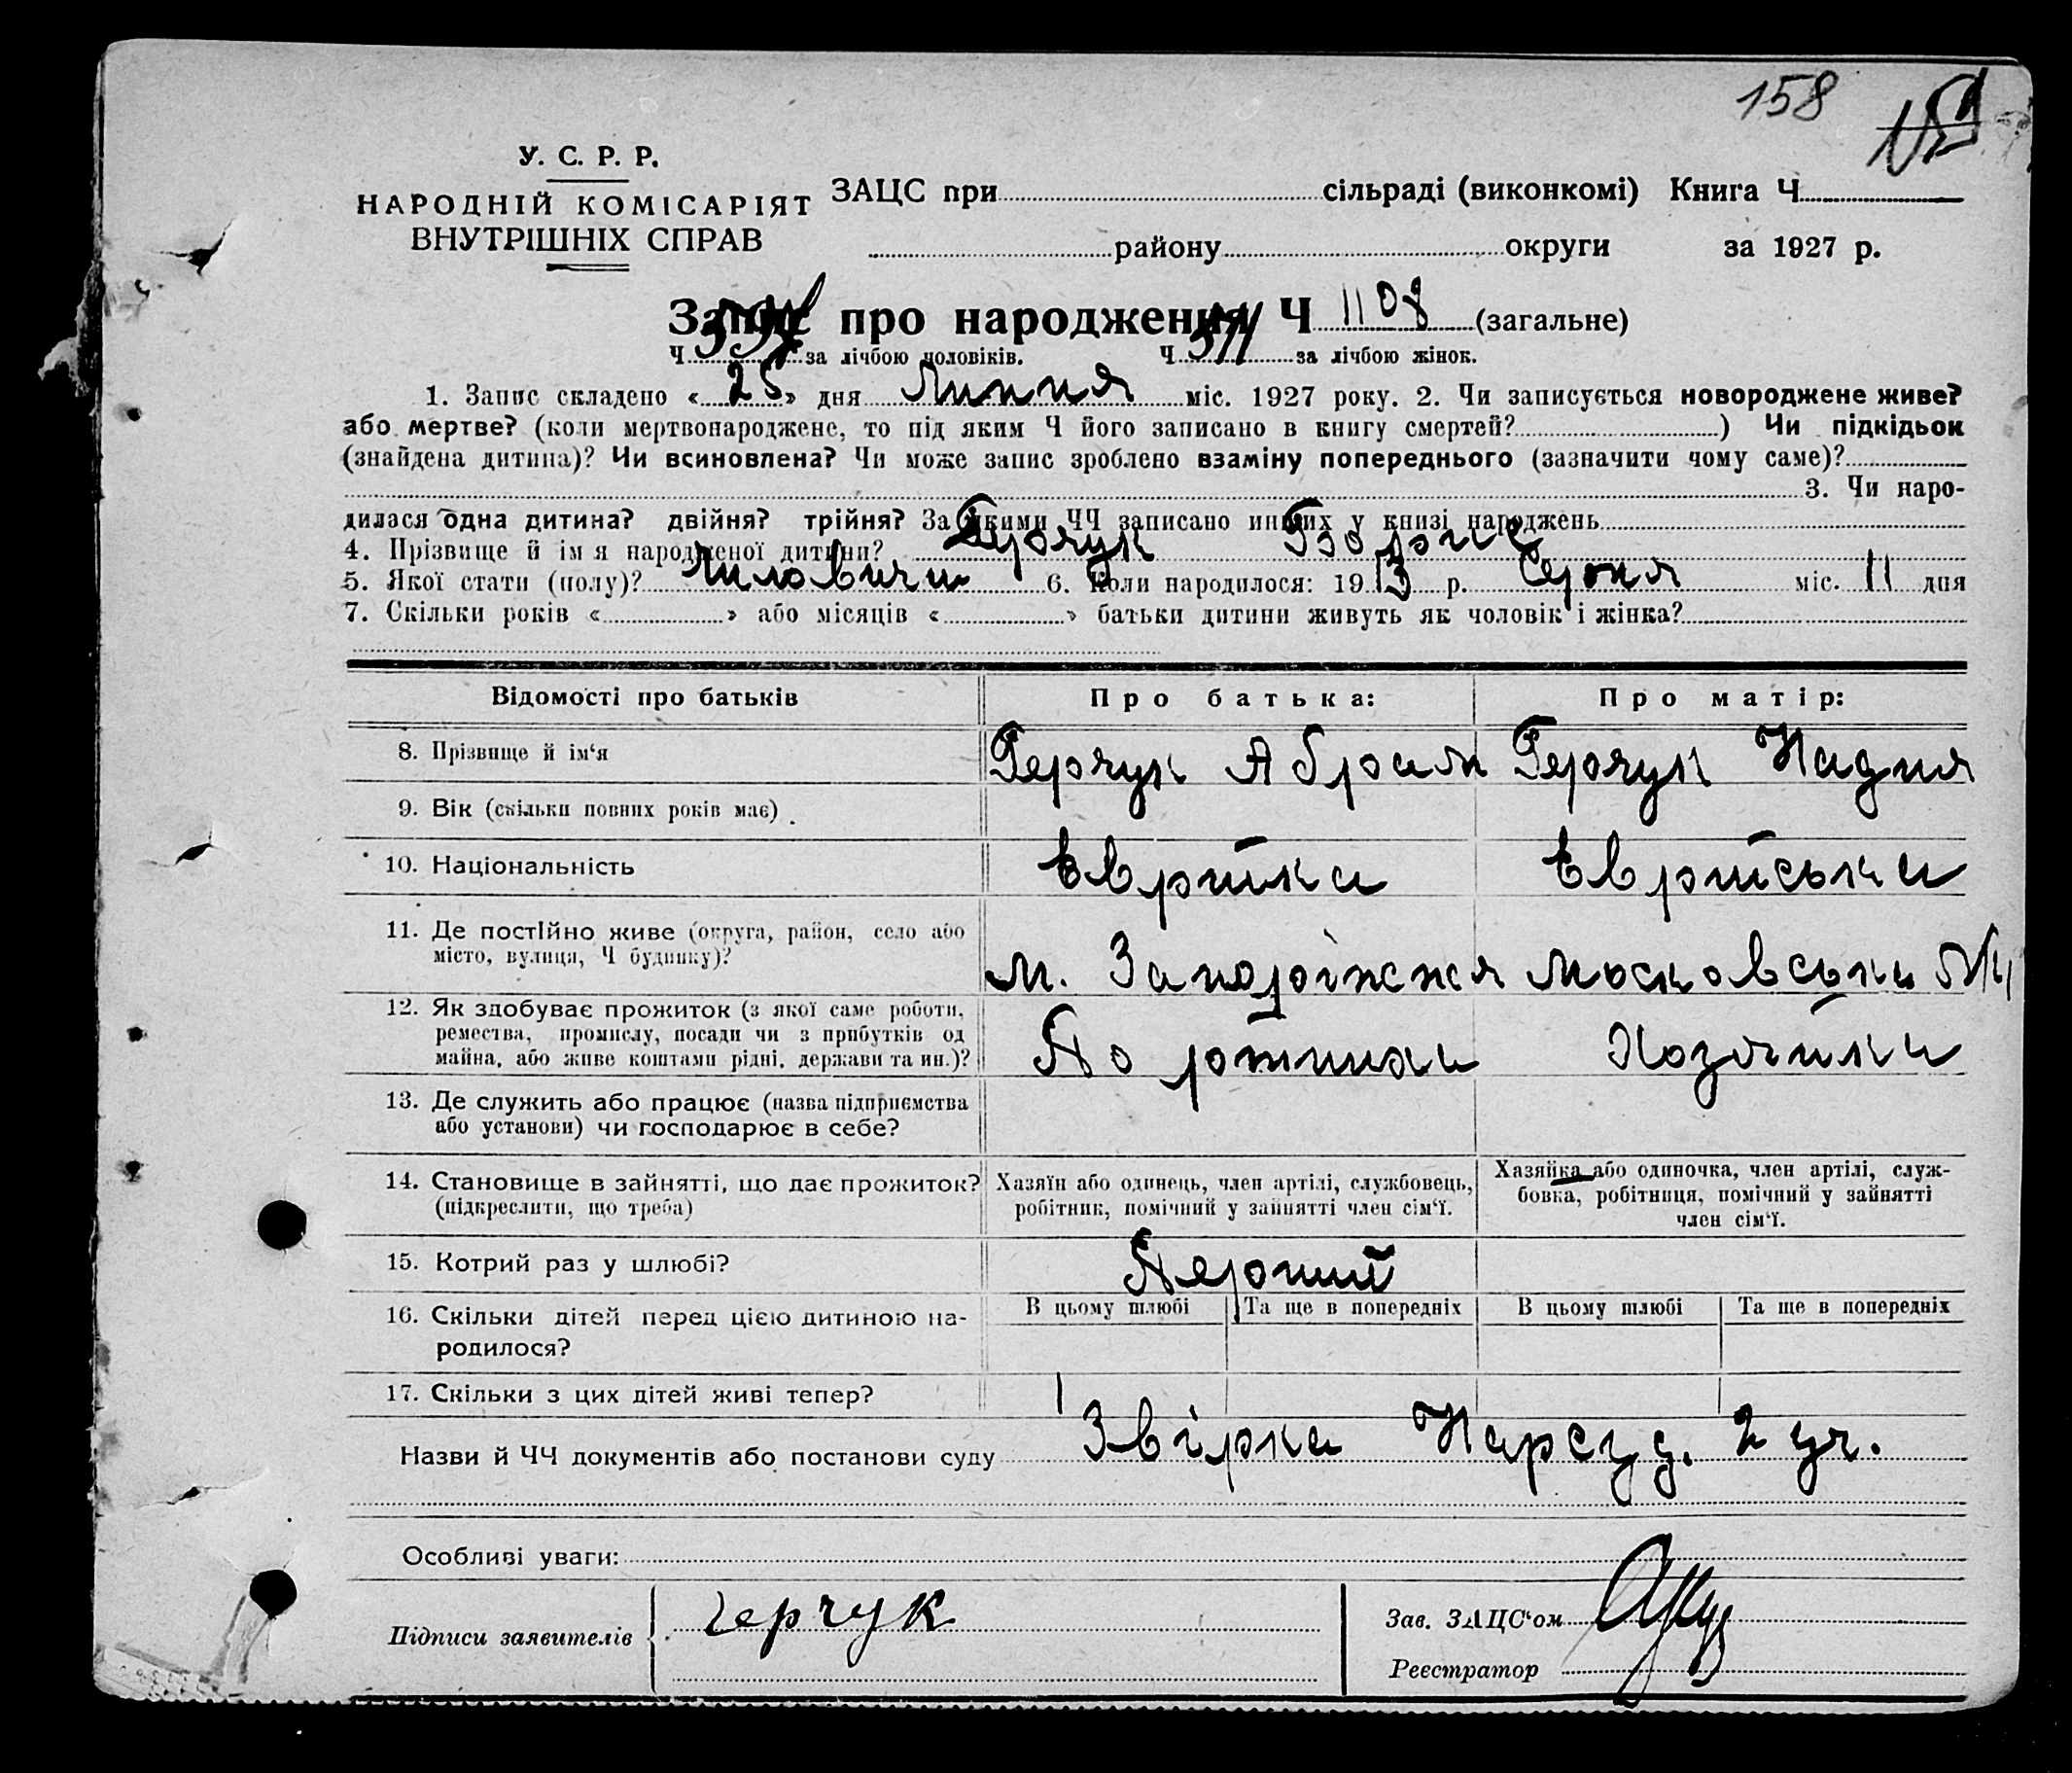 158
У. С. Р. Р.
НАРОДНІЙ КОМІСАРІЯТ
ВНУТРІШНІХ СПРАВ
ЗАЦС при сільраді (виконкомі) Книга Ч
району округи за 1927 р.
Запис про народження Ч 1108 (загальне)
Ч за лічбою чоловіків. Ч 511 за лічбою жінок.
1. Запис складено « 25 » дня Липня міс. 1927 року. 2. Чи записується новороджене живе?
або мертве? (коли мертвонароджене, то під яким Ч його записано в книгу смертей? ) Чи підкідьок
(знайдена дитина)? Чи всиновлена? Чи може запис зроблено взаміну попереднього (зазначити чому саме)?
3. Чи наро-
дилася одна дитина? двійня? трійня? За якими ЧЧ записано инших у книзі народжень
4. Прізвище й ім'я народженої дитини? Герчук Борис
5. Якої стати (полу)? Чиловичи 6. Коли народилося: 1913 р. Серпня міс. 11 дня
7. Скільки років « » або місяців « » батьки дитини живуть як чоловік і жінка?
Відомості про батьків Про батька: Про матір:
8. Прізвище й ім‘я Герчук Абрам Герчук Надия
9. Вік (скільки повних років має)
10. Національність Еврейка Еврейська
11. Де постійно живе (округа, район, село або
місто, вулиця, Ч будинку)?
м. Запоріжжя Московська
12. Як здобуває прожиток (з якої саме роботи,
ремества, промислу, посади чи з прибутків од
майна, або живе коштами рідні, держави та ин.)?
Хозяйка
13. Де служить або працює (назва підприємства
або установи) чи господарює в себе?
14. Становище в зайнятті, що дає прожиток?
(підкреслити, що треба)
Хазяїн або одинець, член артілі, службовець,
робітник, помічний у зайнятті член сім‘ї.
Хазяйка або одиночка, член артілі, служ-
бовка, робітниця, помічний у зайнятті
член сім‘ї.
15. Котрий раз у шлюбі? Перший
16. Скільки дітей перед цією дитиною на-
родилося?
В цьому шлюбі Та ще в попередніх В цьому шлюбі Та ще в попередніх
17. Скільки з цих дітей живі тепер? 1
Назви й ЧЧ документів або постанови суду Звірка Нарсуд. 2 уч.
Особливі уваги:
Підписи заявителів Герчук
Зав. ЗАЦС‘ом
Реєстратор